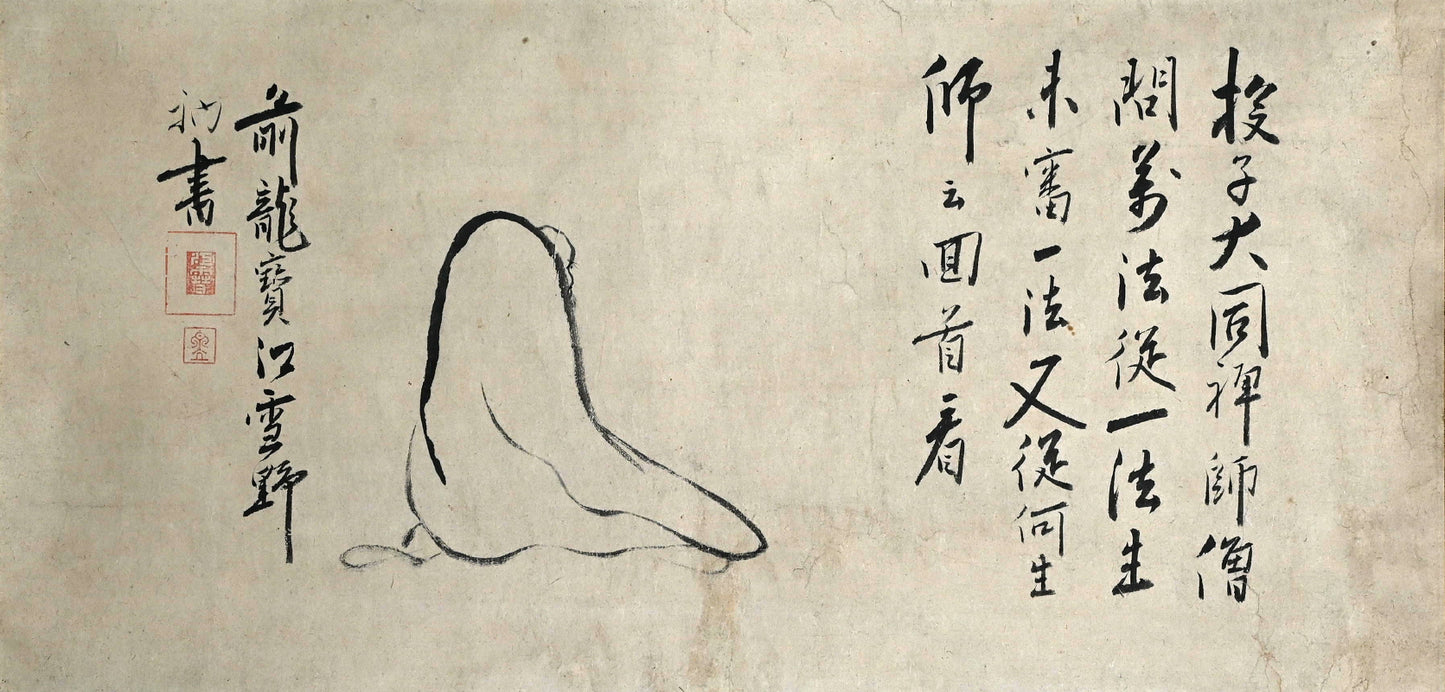 投子大同禅師僧
問萬法従一法生
未審一法又従何生
師云回首看
前龍寳江雪野
衲書